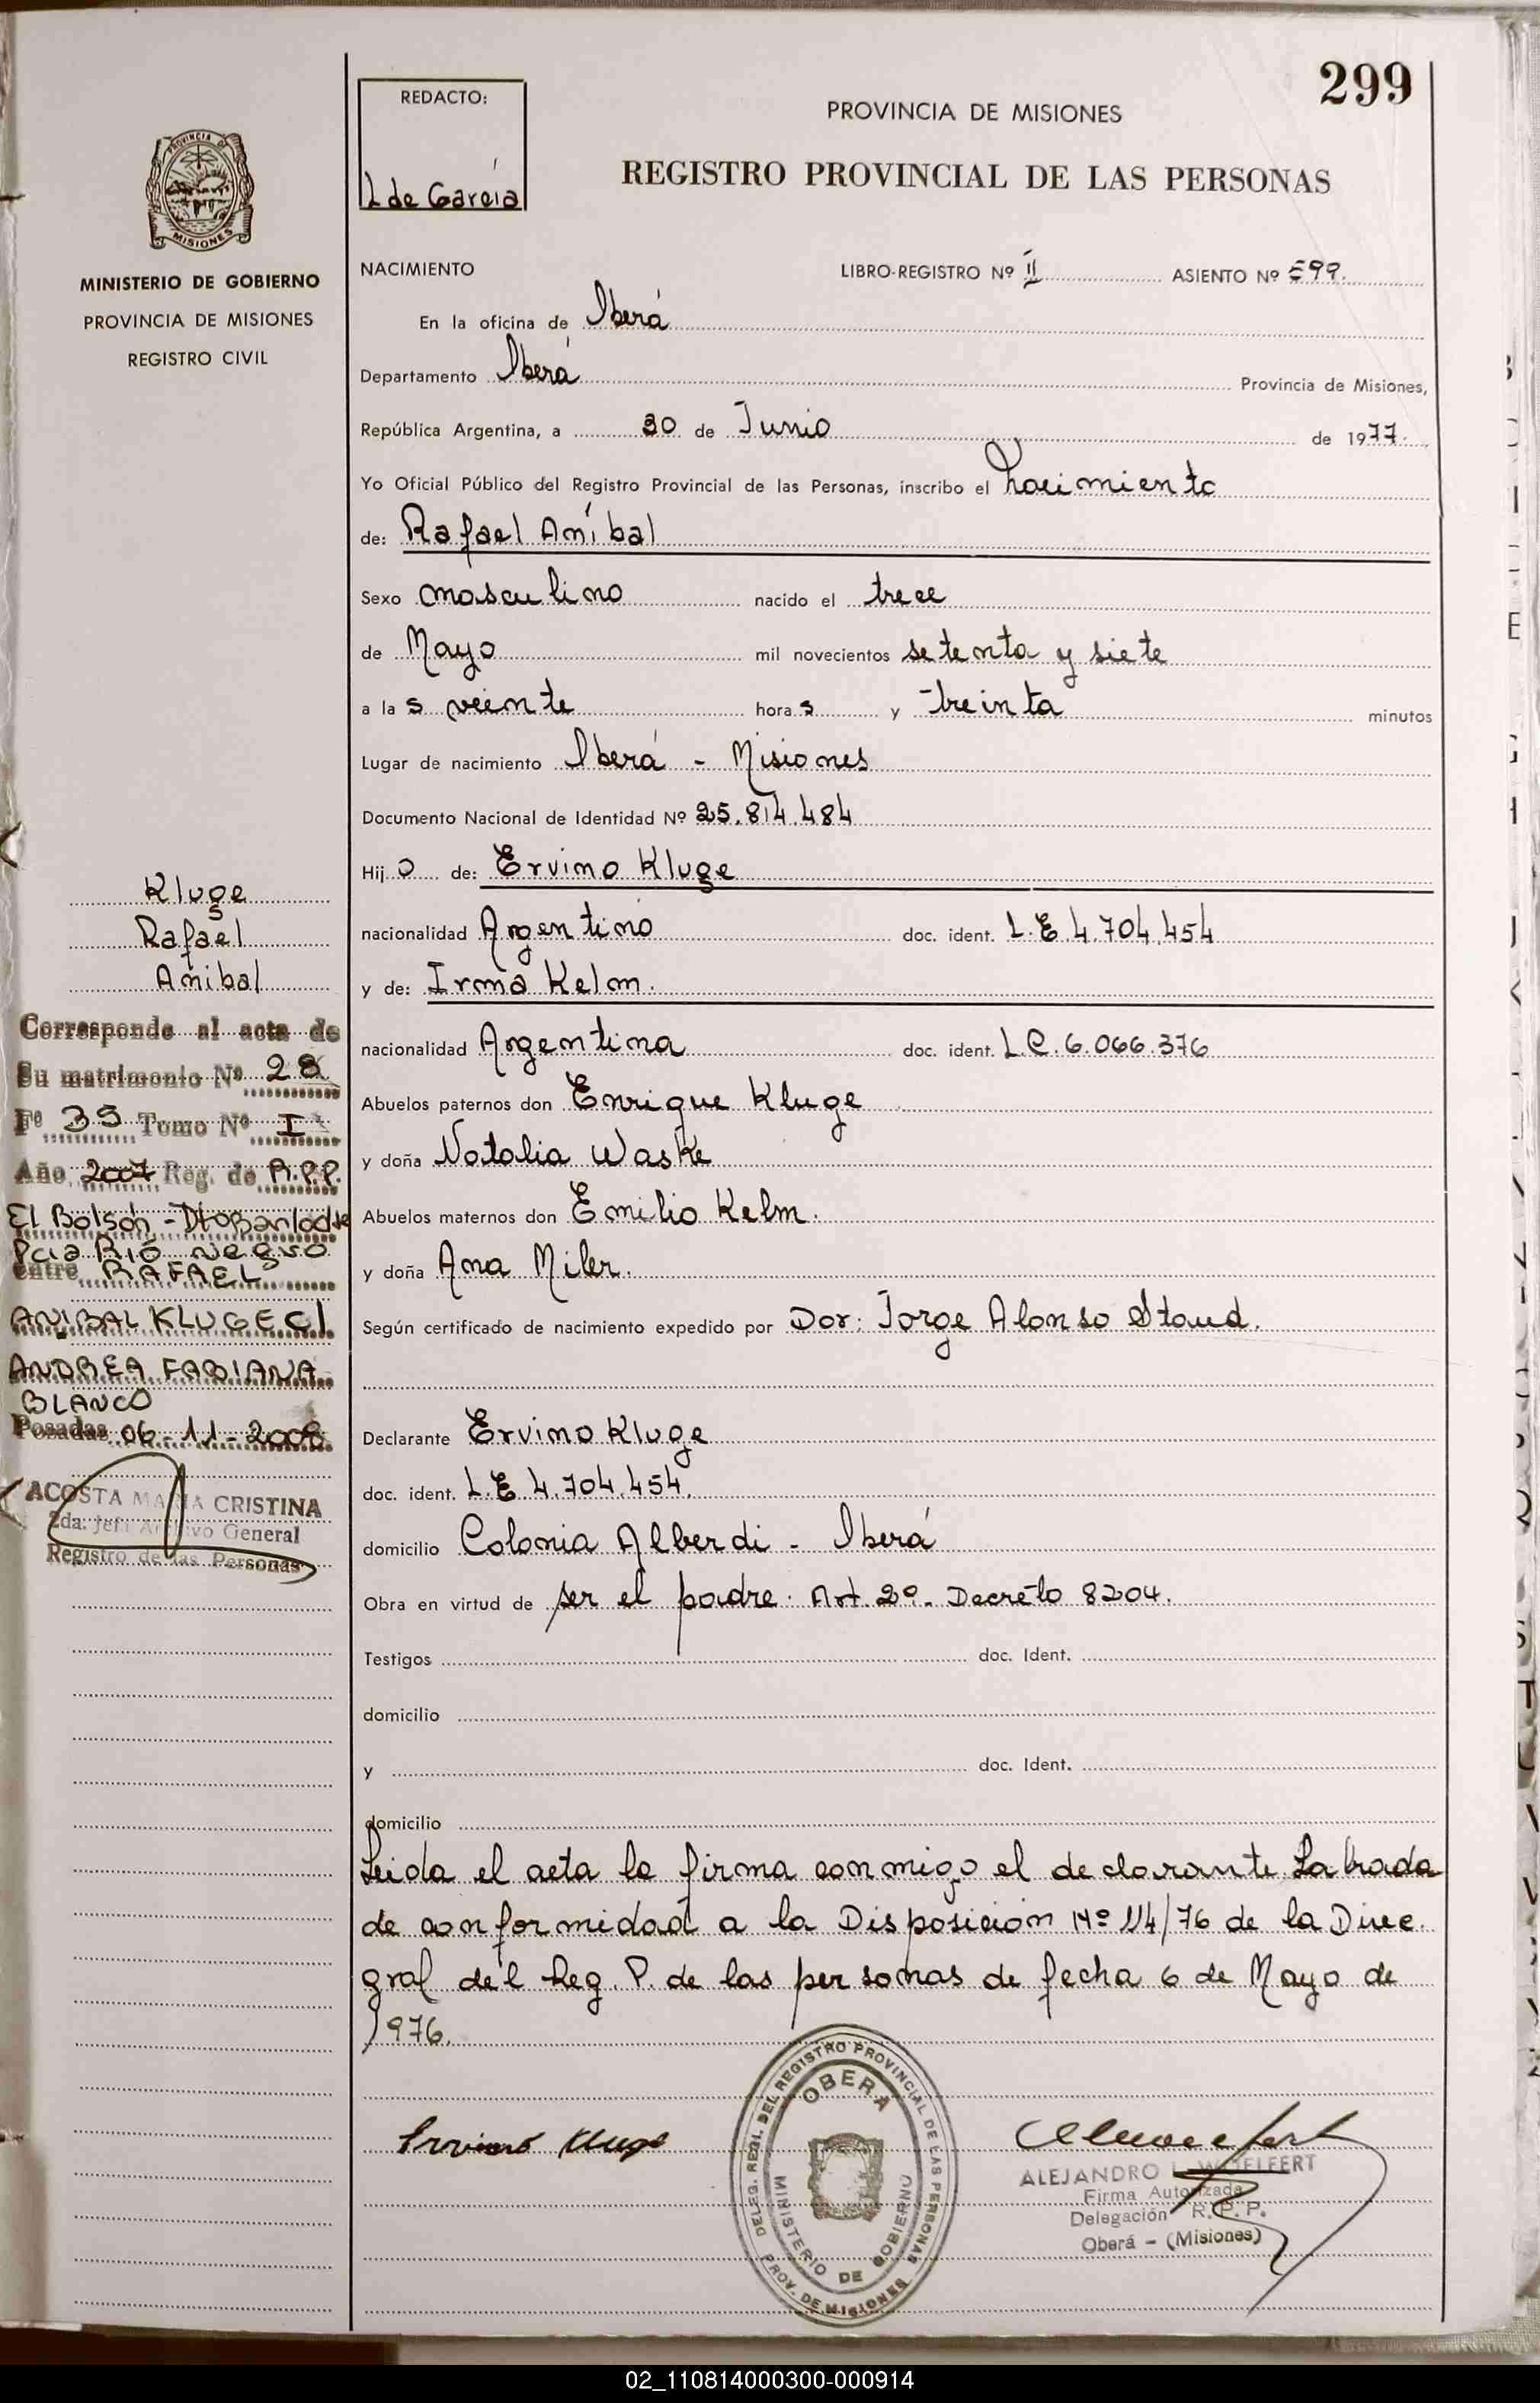 299
REDACTO:
L de García
PROVINCIA DE MISIONES
REGISTRO PROVINCIAL DE LAS PERSONAS
PROVINCIA DE
MISIONES
MINISTERIO DE GOBIERNO
PROVINCIA DE MISIONES
REGISTRO CIVIL
NACIMIENTO LIBRO-REGISTRO Nº II ASIENTO Nº 599.
En la oficina de Oberá
Departamento Oberá Provincia de Misiones,
República Argentina, a 30 de Junio de 1977.
Yo Oficial Público del Registro Provincial de las Personas, inscribo el nacimiento
de: Rafael Aníbal
Sexo masculino nacido el trece
de Mayo mil novecientos setenta y siete
a las veinte horas y treinta minutos
Lugar de nacimiento Oberá - Misiones
Documento Nacional de Identidad Nº 25.814.484
Hijo de: Ervino Kluge
nacionalidad Argentino doc. ident. L.E 4.704.454
y de: Irma Kelm.
nacionalidad Argentina doc. ident. L.C. 6.066.376
Abuelos paternos don Enrique Kluge
y doña Natalia Waske
Abuelos maternos don Emilio Kelm.
y doña Ana Miler.
Según certificado de nacimiento expedido por Dor: Jorge Alonso Staud.
Declarante Ervino Kluge
doc. ident. L.E 4.704.454.
domicilio Colonia Alberdi - Oberá
Obra en virtud de ser el padre. Art. 2º. Decreto 8204.
Testigos doc. Ident.
domicilio
y doc. Ident.
domicilio
Leida el acta la firma conmigo el declarante. Labrada
de conformidad a la Disposición Nº 114/76 de la Direc.
gral del Reg. P. de las personas de fecha 6 de Mayo de
1976.
Kluge
Rafael
Anibal
Corresponde al acta de
Su matrimonio Nº 28
Fº 35 Tomo Nº I
Año 2007 Reg. de R.P.P.
El Bolsón - Dto Bariloche
Pcia Rió Negro
entre RAFAEL
ANIBAL KLUGE C/
ANDREA FABIANA
BLANCO
Posadas 06-11-2008
ACOSTA MARIA CRISTINA
2da. Jefe Archivo General
Registro de las Personas
Ervino Kluge
DELEG. REGI. DEL REGISTRO PROVINCIAL DE LAS PERSONAS
OBERA
MINISTERIO DE GOBIERNO
PROV. DE MISIONES
ALEJANDRO L. WOELFERT
Firma Autorizada
Delegación R. P. P.
Oberá - (Misiones)
02_110814000300-000914